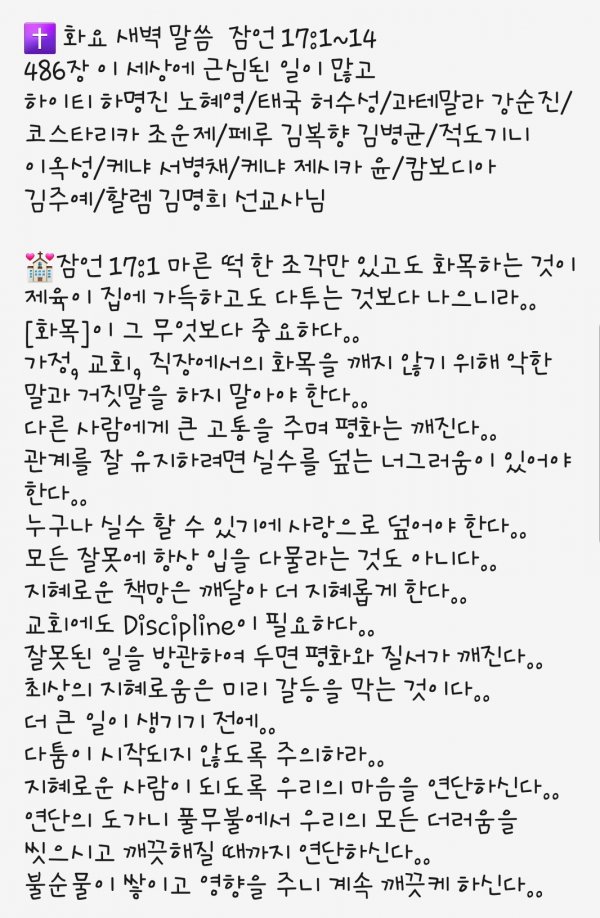 ✝️ 화요 새벽 말씀 잠언 17:1~14
486장 이 세상에 근심된 일이 많고
하이티 하명진 노혜영/태국 허수성/과테말라 강순진/
코스타리카 조운제/페루 김복향 김병균/적도기니
이옥성/케냐 서병채/케냐 제시카 윤/캄보디아
김주예/할렘 김명희 선교사님
💒잠언 17:1 마른 떡 한 조각만 있고도 화목하는 것이
제육이 집에 가득하고도 다투는 것보다 나으니라..
[화목]이 그 무엇보다 중요하다..
가정, 교회, 직장에서의 화목을 깨지 않기 위해 악한
말과 거짓말을 하지 말아야 한다..
다른 사람에게 큰 고통을 주며 평화는 깨진다..
관계를 잘 유지하려면 실수를 덮는 너그러움이 있어야
한다..
누구나 실수 할 수 있기에 사랑으로 덮어야 한다..
모든 잘못에 항상 입을 다물라는 것도 아니다..
지혜로운 책망은 깨달아 더 지혜롭게 한다..
교회에도 Discipline이 필요하다..
잘못된 일을 방관하여 두면 평화와 질서가 깨진다..
최상의 지혜로움은 미리 갈등을 막는 것이다..
더 큰 일이 생기기 전에..
다툼이 시작되지 않도록 주의하라..
지혜로운 사람이 되도록 우리의 마음을 연단하신다..
연단의 도가니 풀무불에서 우리의 모든 더러움을
씻으시고 깨끗해질 때까지 연단하신다..
불순물이 쌓이고 영향을 주니 계속 깨끗케 하신다..